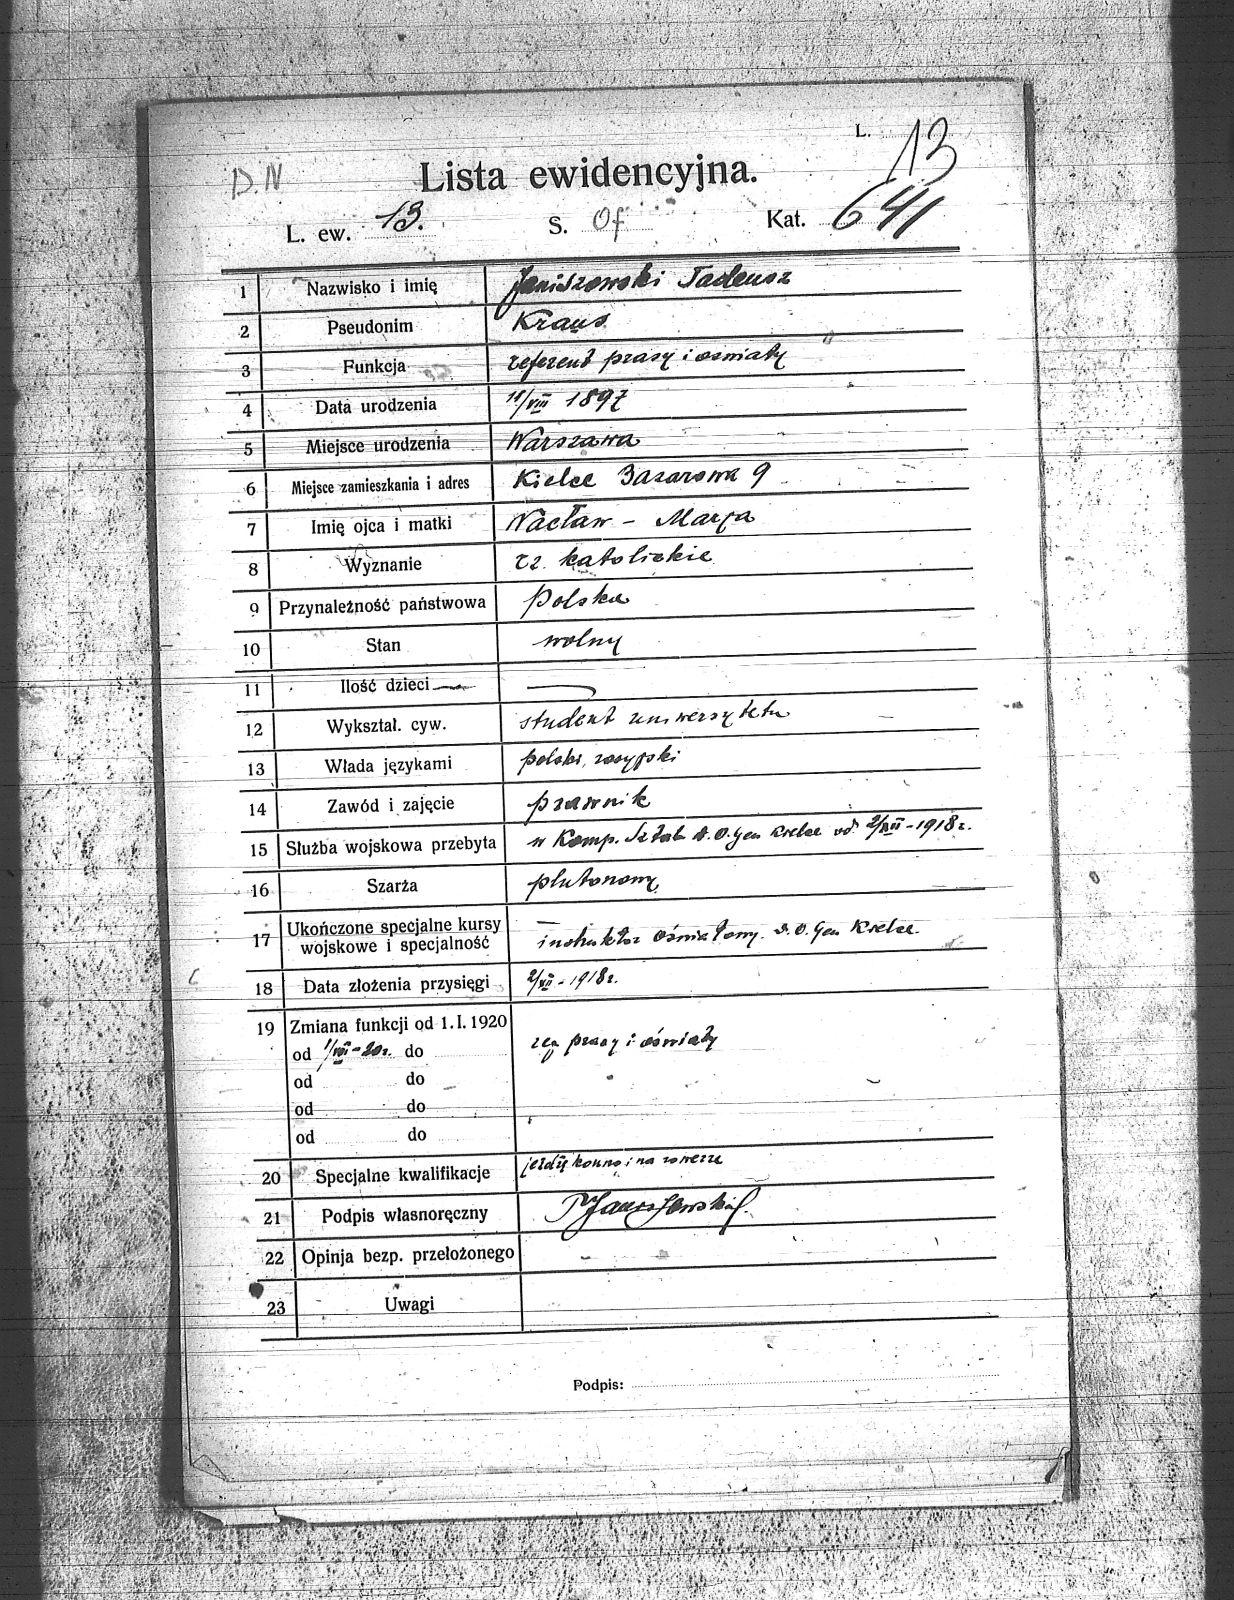 L. 13
D.N Lista ewidencyjna.
L. ew. 13. S. Of Kat. 641
1 Nazwisko i imię Janiszowski Tadeusz
2 Pseudonim Kraus
3 Funkcja referent prasy i oświaty
4 Data urodzenia 1897
5 Miejsce urodzenia Warszawa
6 Miejsce zamieszkania i adres Kielce Bazarowa 9
7 Imię ojca i matki Wacław - Marja
8 Wyznanie rz. katolickie
9 Przynależność państwowa Polska
10 Stan wolny
11 Ilość dzieci —
12 Wykształ. cyw. student uniwersytetu
13 Włada językami polski, rosyjski
14 Zawód i zajęcie prawnik
15 Służba wojskowa przebyta w Komp. Sztab. D.O.Gen Kielce od 1918 r.
16 Szarża plutonowy
17 Ukończone specjalne kursy
wojskowe i specjalność instruktor oświatowy. D.O.Gen Kielce.
18 Data złożenia przysięgi 1918 r.
19 Zmiana funkcji od 1. I. 1920
od 1/VIII-20 r. do ref prasy i oświaty
od do
od do
od do
20 Specjalne kwalifikacje jeżdżę konno i na rowerze
21 Podpis własnoręczny
22 Opinja bezp. przełożonego
23 Uwagi
Podpis: